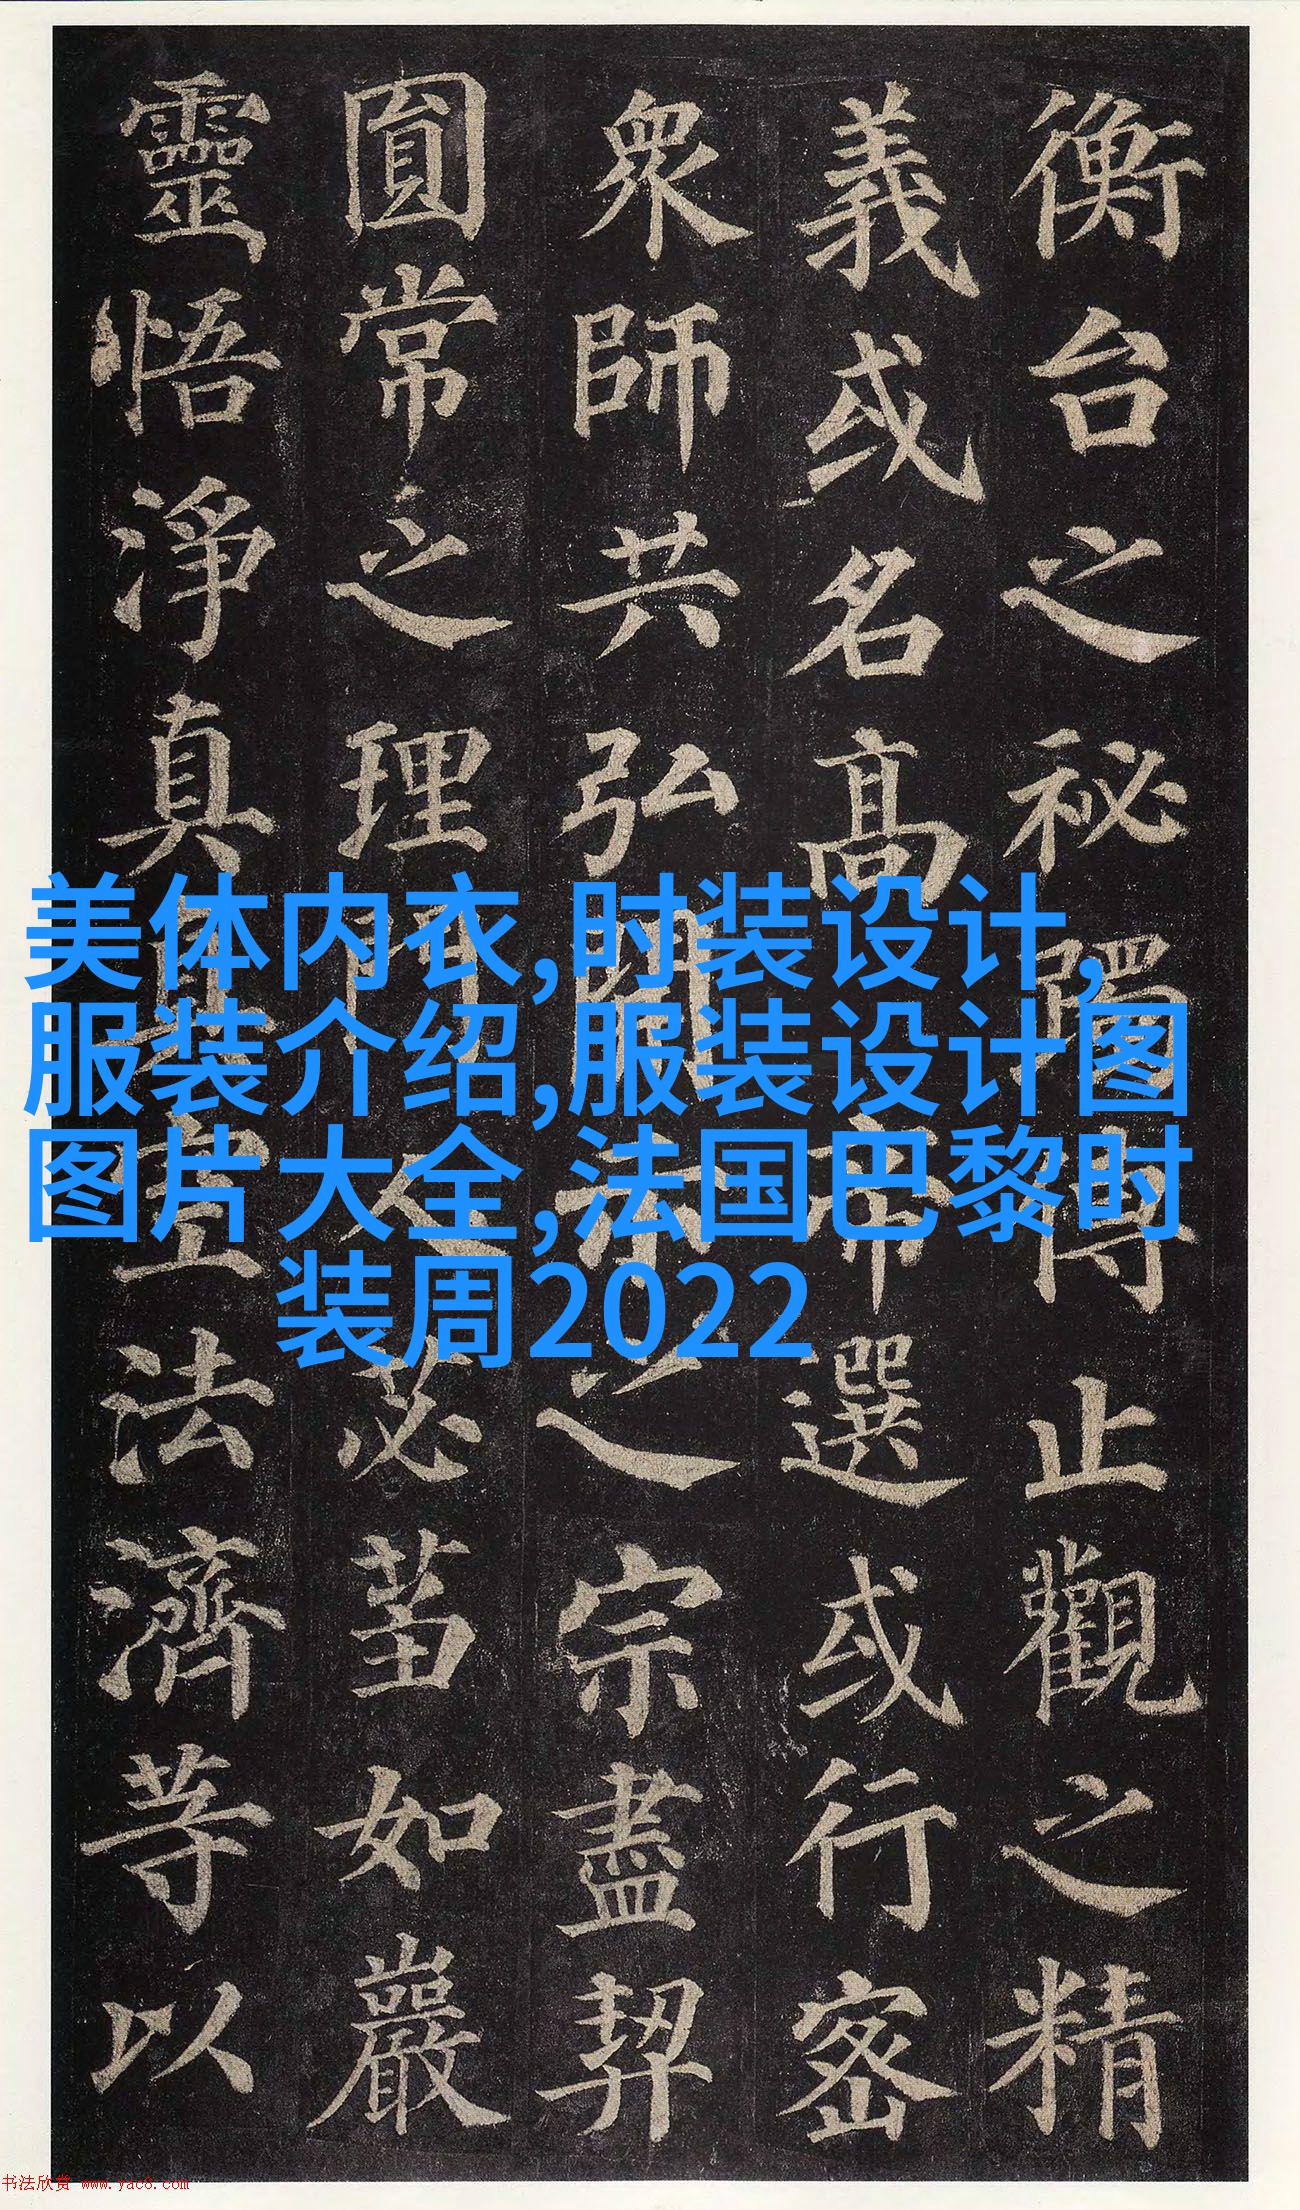 衡台之秘躅傳止觀之精
義或名高帝選或行密
衆師共弘開示之宗盡契
圓常之理門人苾蒭如巖
靈悟淨真真空法濟等以
美体内衣,时装设计,
服装介绍,服装设计图
图片大全,法国巴黎时
装周2022
书法欣赏 www.yac8.com